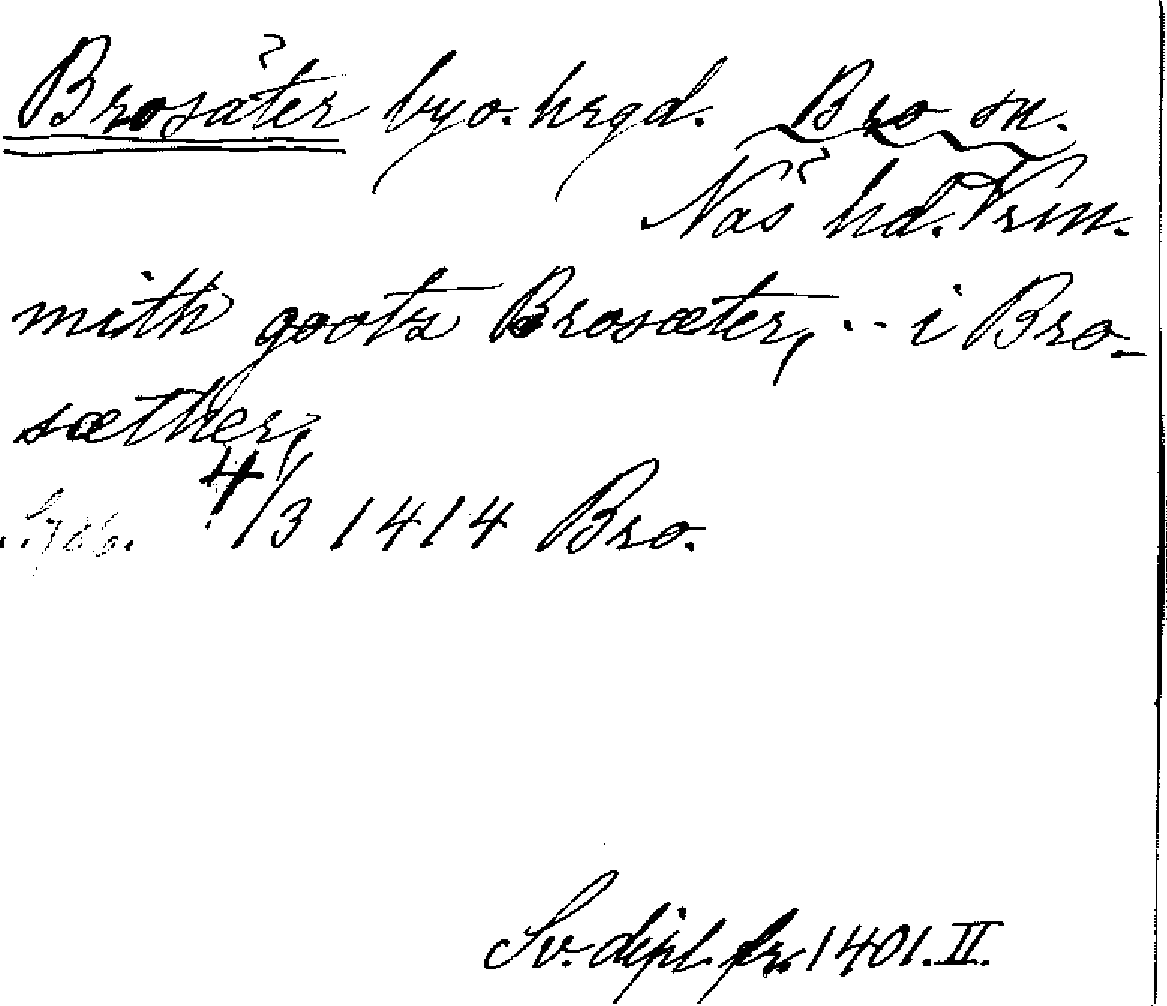 Brosäter by o. hrgd. Bro sn.
Näs hd. Vrm.
mith gootz Brosæter, ·· i Bro-
sæther,
S. 706. 4/3 1414 Bro.
Sv. dipl. fr. 1401. II.